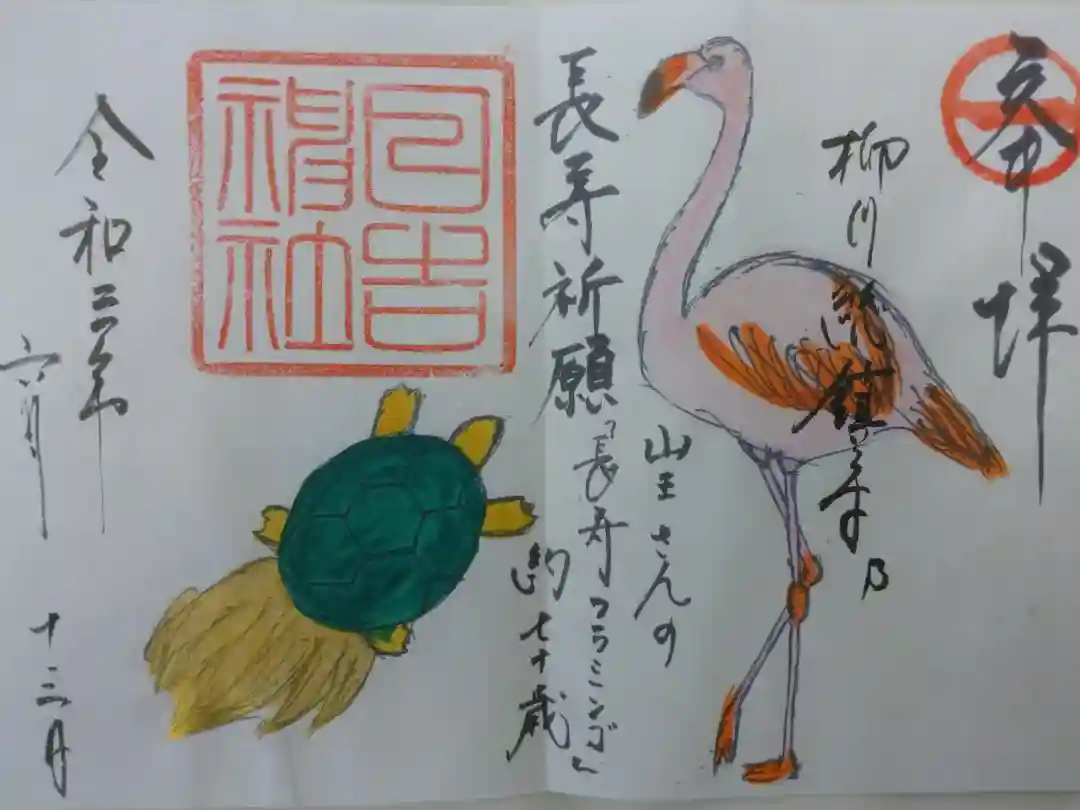 奉拝
柳川総鎮守乃
山王さんの
長寿祈願「長寿フラミンゴ」
約七十歳
日吉
神社
令和三年
六月十三日